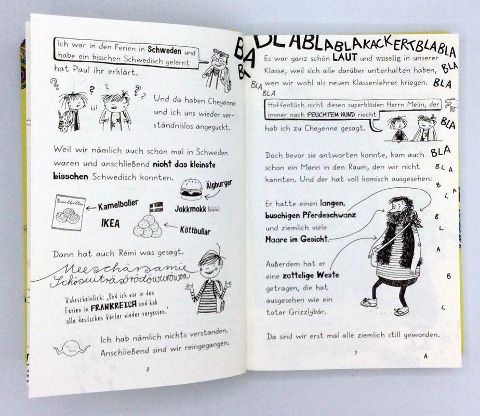 Ich war in den Ferien in Schweden und
habe ein bisschen Schwedisch gelernt,
hat Paul ihr erklärt.
Und da haben Cheyenne
und ich uns wieder ver-
ständnislos angeguckt.
Weil wir nämlich auch schon mal in Schweden
waren und anschließend nicht das kleinste
bisschen Schwedisch konnten.
Älgburger
Kamelboller
IKEA
Jokkmokk
Köttbullar
Dann hat auch Rémi was gesagt.
Wahrscheinlich: „Und ich war in den
Ferien in FRANKREICH und hab
alle deutschen Wörter wieder vergessen.
Ich hab nämlich nichts verstanden.
Anschließend sind wir reingegangen.
8
BLA
BLABLABLAKACKERTBLABLA
Es war ganz schön LAUT und wuselig in unserer
Klasse, weil sich alle darüber unterhalten haben,
wen wir wohl als neuen Klassenlehrer kriegen.
BLA
Hoffentlich nicht diesen superblöden Herrn Mein, der
immer nach FEUCHTEM HUND riecht
hab ich zu Cheyenne gesagt.
BLA
BLA
Doch bevor sie antworten konnte, kam auch
schon ein Mann in den Raum, den wir nicht
kannten. Und der hat voll komisch ausgesehen.
Er hatte einen langen,
buschigen Pferdeschwanz
und ziemlich viele
Haare im Gesicht.
Außerdem hat er
eine zottelige Weste
getragen, die hat
ausgesehen wie ein
toter Grizzlybär.
Da sind wir erst mal alle ziemlich still geworden.
BLA
B L A
B
L
A
B
L
A